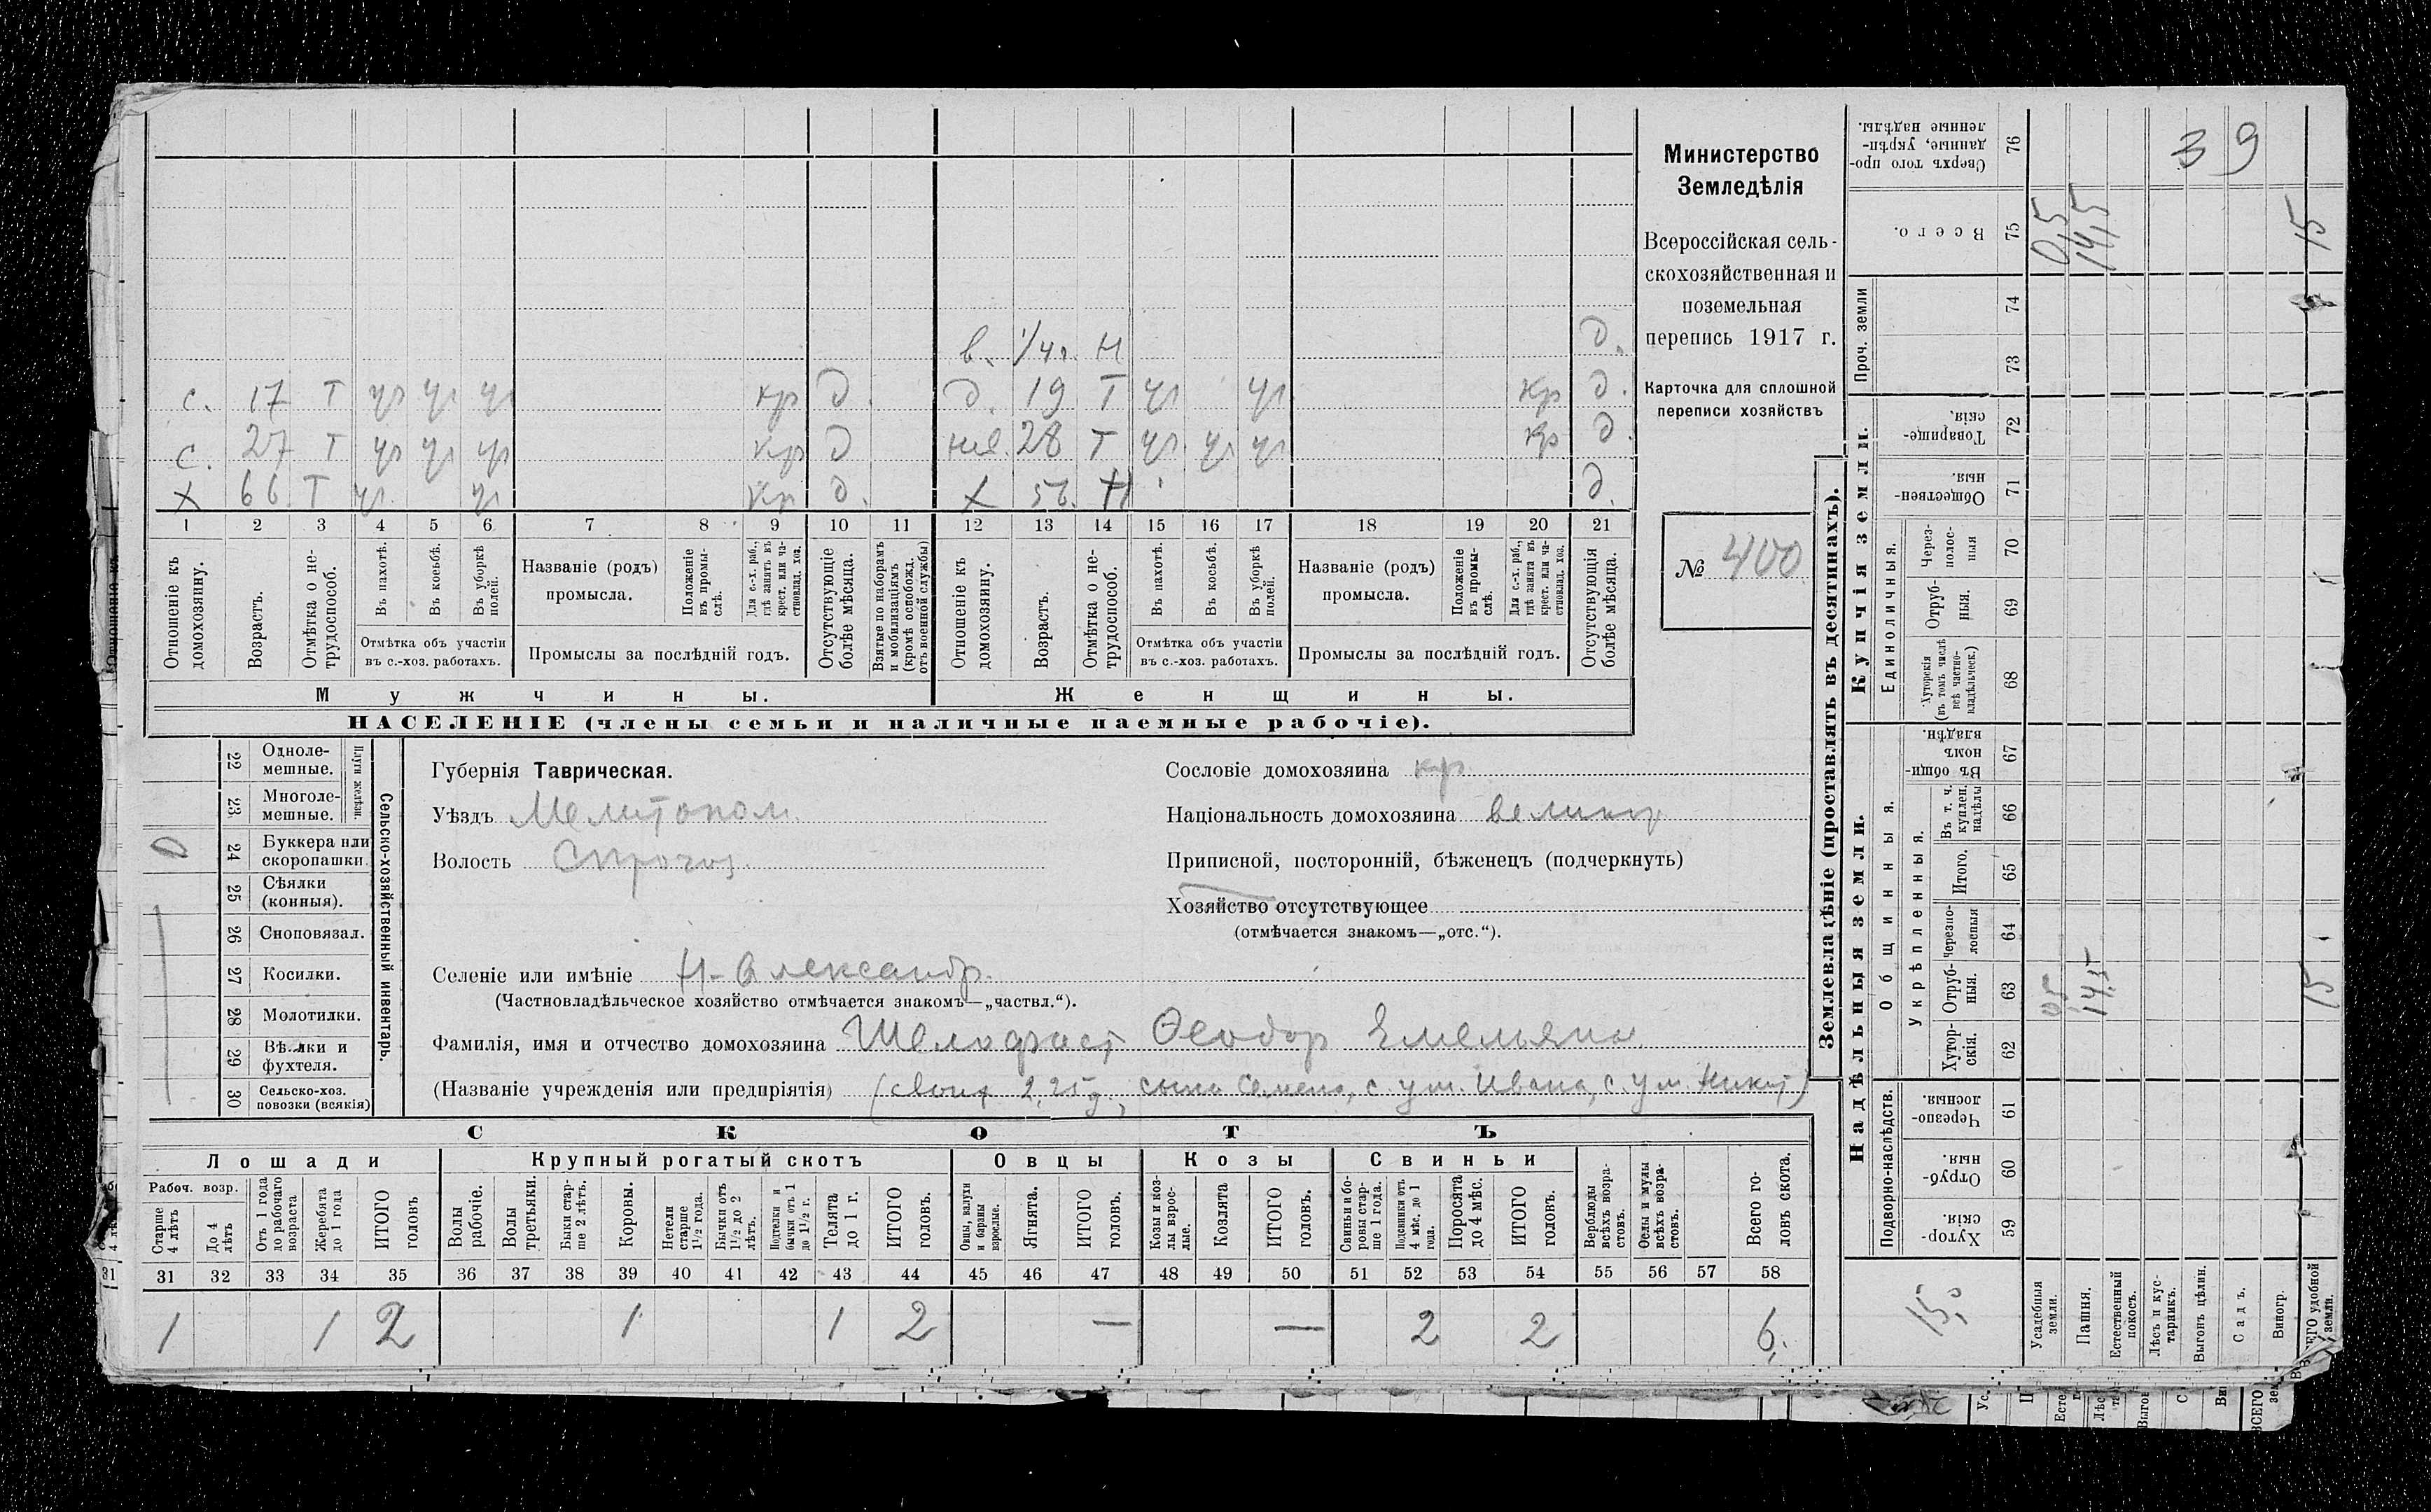 в. 1/4 г. Н д.
с. 17 Т уч уч уч кр д. д. 19 Т уч уч кр д.
с. 27 Т уч уч уч кр д 28 Т уч уч уч кр д.
х 66 Т уч уч кр д. х 56. Н д.
1 2 3 4 5 6 7 8 9 10 11 12 13 14 15 16 17 18 19 20 21
Отношеніе къ домохозяину.
Возрастъ.
Отмѣтка о не-
трудоспособ.
Въ пахотѣ.
Въ косьбѣ.
Въ уборкѣ
полей.
Отмѣтка объ участіи
въ с.-хоз. работахъ.
Названіе (родъ)
промысла.
Положеніе
въ промы-
слѣ.
Для с.-х. раб.,
гдѣ занятъ въ
крест. или ча-
стновлад. хоз.
Промыслы за послѣдній годъ.
Отсутствующіе
болѣе мѣсяца.
Взятые по наборамъ
и мобилизаціямъ
(кромѣ освобожд.
отъ военной службы)
Отношеніе къ
домохозяину.
Возрастъ.
Отмѣтка о не-
трудоспособ.
Въ пахотѣ.
Въ косьбѣ.
Въ уборкѣ
полей.
Отмѣтка объ участіи
въ с.-хоз. работахъ.
Названіе (родъ)
промысла.
Положеніе
въ промы-
слѣ.
Для с.-х. раб.,
гдѣ занята въ
крест. или ча-
стновлад. хоз.
Промыслы за послѣдній годъ.
Отсутствующія
болѣе мѣсяца.
Мужчины.
Женщины.
НАСЕЛЕНІЕ (члены семьи и наличные наемные рабочіе).
Министерство
Земледѣлія
Всероссійская сель-
скохозяйственная и
поземельная
перепись 1917 г.
Карточка для сплошной
переписи хозяйствъ
№ 400
22 Одноле-
мешные.
23 Многоле-
мешные.
Плуги желѣзн.
24 Буккера или
скоропашки.
25 Сѣялки
(конныя).
26 Сноповязал.
27 Косилки.
28 Молотилки.
29 Вѣялки и
фухтеля.
30 Сельско-хоз.
повозки (всякія)
Сельско-хозяйственный инвентарь.
Губернія Таврическая.
Уѣздъ Мелитопол.
Волость
Селеніе или имѣніе Н-Александр.
(Частновладѣльческое хозяйство отмѣчается знакомъ—„частвл.“).
Фамилія, имя и отчество домохозяина Шелофаст Ѳеодор Емельяно.
(Названіе учрежденія или предпріятія) (своих 2,25 д, сына Семена, с. ум. Ивана, с. ум. Никит)
Сословіе домохозяина кр
Національность домохозяина великор
Приписной, посторонній, бѣженецъ (подчеркнуть)
Хозяйство отсутствующее
(отмѣчается знакомъ—„отс.“).
СКОТЪ
Лошади
Крупный рогатый скотъ
Овцы
Козы
Свиньи
Рабоч. возр.
Старше
4 лѣтъ
До 4
лѣтъ
Отъ 1 года
до рабочаго
возраста
Жеребята
до 1 года
ИТОГО
головъ
Волы
рабочіе.
Волы
третьяки.
Быки стар-
ше 2 лѣтъ.
Коровы.
Нетели
старше
1½ года.
Бычки отъ
1½ до 2
лѣтъ.
Подтелки и
бычки отъ 1
до 1½ г.
Телята
до 1 г.
ИТОГО
головъ.
Овцы, валухи
и бараны
взрослые.
Ягнята.
ИТОГО
головъ.
Козы и коз-
лы взрос-
лые.
Козлята
ИТОГО
головъ.
Свиньи и бо-
ровы стар-
ше 1 года.
Подсвинки отъ
4 мѣс. до 1
года.
Поросята
до 4 мѣс.
ИТОГО
головъ.
Верблюды
всѣхъ возра-
стовъ.
Ослы и мулы
всѣхъ возра-
стовъ.
Всего го-
ловъ скота.
31 32 33 34 35 36 37 38 39 40 41 42 43 44 45 46 47 48 49 50 51 52 53 54 55 56 57 58
1 1 2 1 1 2 — — 2 2 6.
Землевладѣніе (проставлять въ десятинахъ).
Надѣльныя земли.
Купчія земли.
Проч. земли
Подворно-наслѣдств.
Общинныя.
Укрѣпленныя.
Единоличныя.
Сверхъ того про-
данные, укрѣп-
ленные надѣлы.
76
Всего.
75
74
73
Товарище-
скія.
72
Обществен-
ныя.
71
Через-
полос-
ныя
70
Отруб-
ныя.
69
Хуторскія
(въ томъ числѣ
всѣ частно-
владѣльческ.)
68
Въ общи-
номъ
владѣн.
67
Въ т. ч.
куплен.
надѣлы
66
Итого.
65
Черезпо-
лосныя
64
Отруб-
ныя.
63
Хутор-
скія.
62
Черезпо-
лосныя.
61
Отруб-
ныя.
60
Хутор-
скія.
59
15,0
Усадебныя
земли.
Пашня.
Естественный
покосъ.
Лѣсъ и кус-
тарникъ.
Выгонъ цѣлин.
Садъ.
Виногр.
ВСЕГО удобной
земли.
39
0,5
14,5
15
05
14,5
15